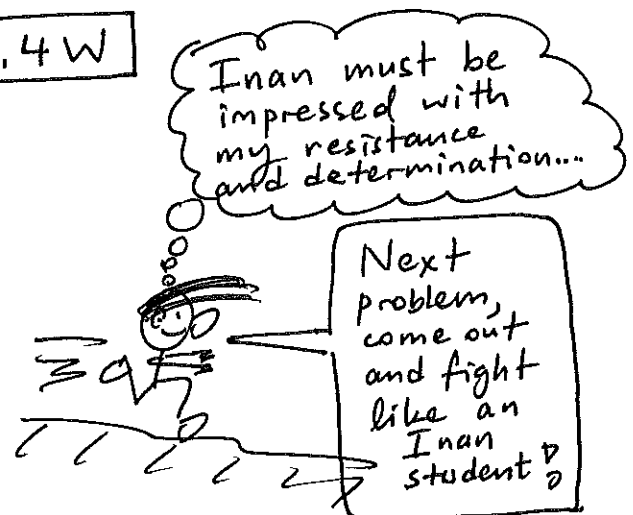 .4 W
Inan must be
impressed with
my resistance
and determination....
Next
problem,
come out
and fight
like an
Inan
student!